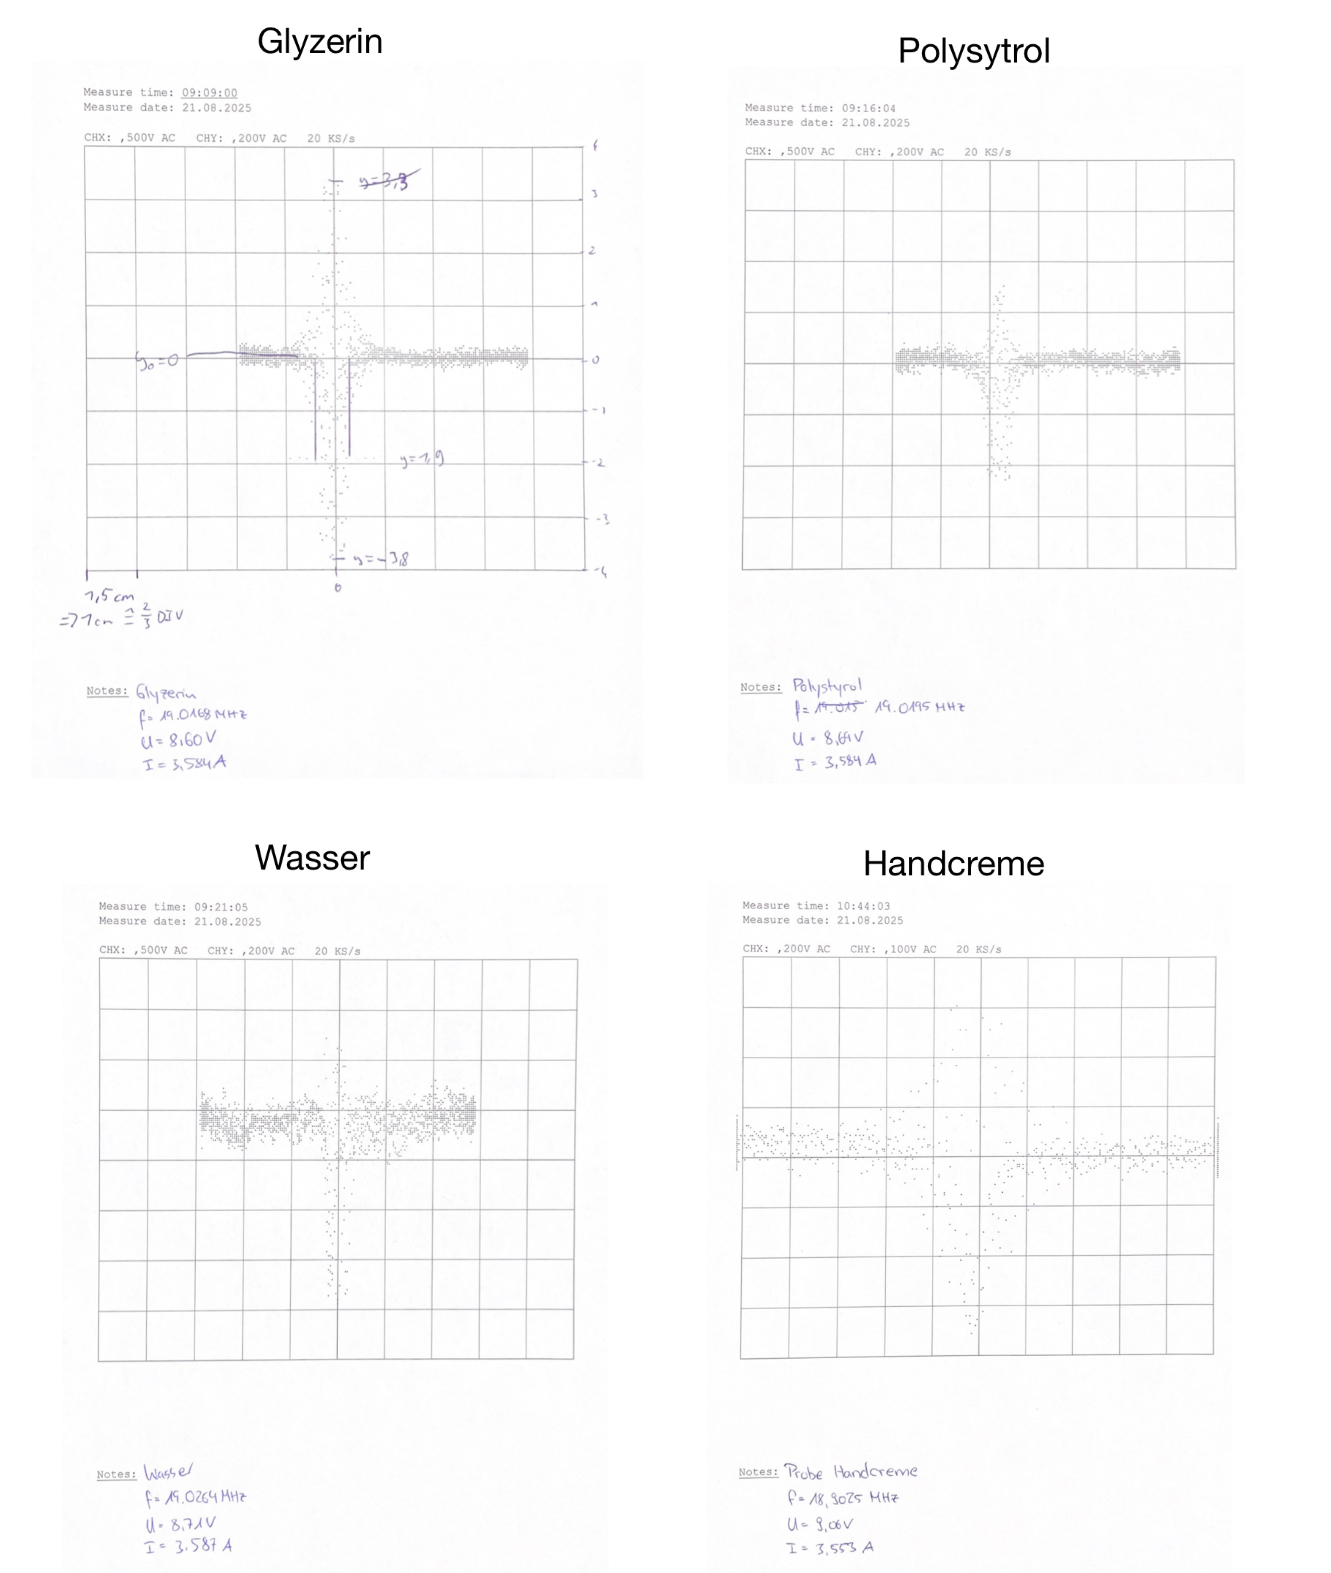 Glyzerin
Measure time: 09:09:00
Measure date: 21.08.2025
CHX: ,500V AC CHY: ,200V AC 20 KS/s
3
2
1
0
-1
-2
-3
-4
y=3,3
y₀=0
y=1,9
y=-3,8
0
1,5 cm
=> 1cm ≙ 2/3 DIV
Notes: Glyzerin
f= 19.0168 MHz
U= 8,60 V
I= 3,584 A
Polysytrol
Measure time: 09:16:04
Measure date: 21.08.2025
CHX: ,500V AC CHY: ,200V AC 20 KS/s
Notes: Polystyrol
f= 19.015 19.0195 MHz
U = 8,69V
I = 3,584 A
Wasser
Measure time: 09:21:05
Measure date: 21.08.2025
CHX: ,500V AC CHY: ,200V AC 20 KS/s
Notes: Wasser
f= 19.0264 MHz
U= 8,71V
I= 3.587 A
Handcreme
Measure time: 10:44:03
Measure date: 21.08.2025
CHX: ,200V AC CHY: ,100V AC 20 KS/s
Notes: Probe Handcreme
f= 18,9025 MHz
U= 9,06V
I= 3,553 A